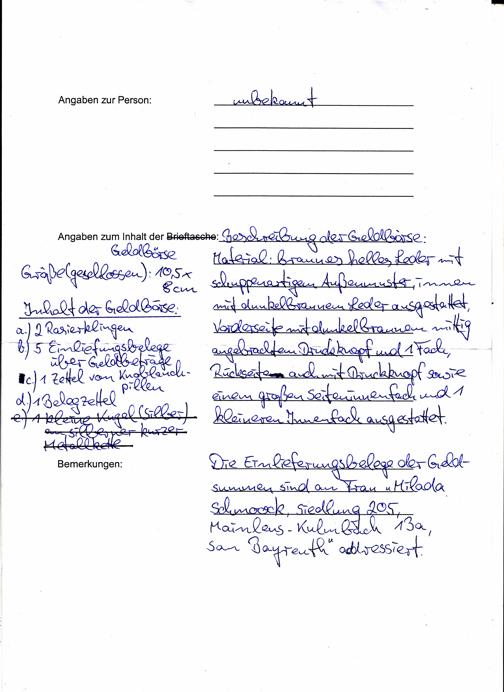 Angaben zur Person: unbekannt
Angaben zum Inhalt der Brieftasche:
Geldbörse
Größe (geschlossen): 10,5 x
8 cm
Inhalt der Geldbörse:
a.) 2 Rasierklingen
b.) 5 Einlieferungsbelege
über Geldbeträge
c.) 1 Zettel von Knoblauch-
pillen
d.) 1 Belegzettel
e.) 1 kleine Kugel (Silber)
an silberner kurzer
Metallkette
Beschreibung der Geldbörse:
Material: braunes helles Leder mit
schuppenartigen Außenmuster, innen
mit dunkelbraunem Leder ausgestattet,
Vorderseite mit dunkelbraunen mittig
angebrachtem Druckknopf und 1 Fach,
Rückseite auch mit Druckknopf sowie
einem großen Seiteninnenfach und 1
kleineren Innenfach ausgestattet.
Bemerkungen:
Die Einlieferungsbelege der Geld-
summen sind an Frau "Milada
Schmoock, Siedlung 205,
Mainleus-Kulmbach 13a,
Bayreuth" addressiert.